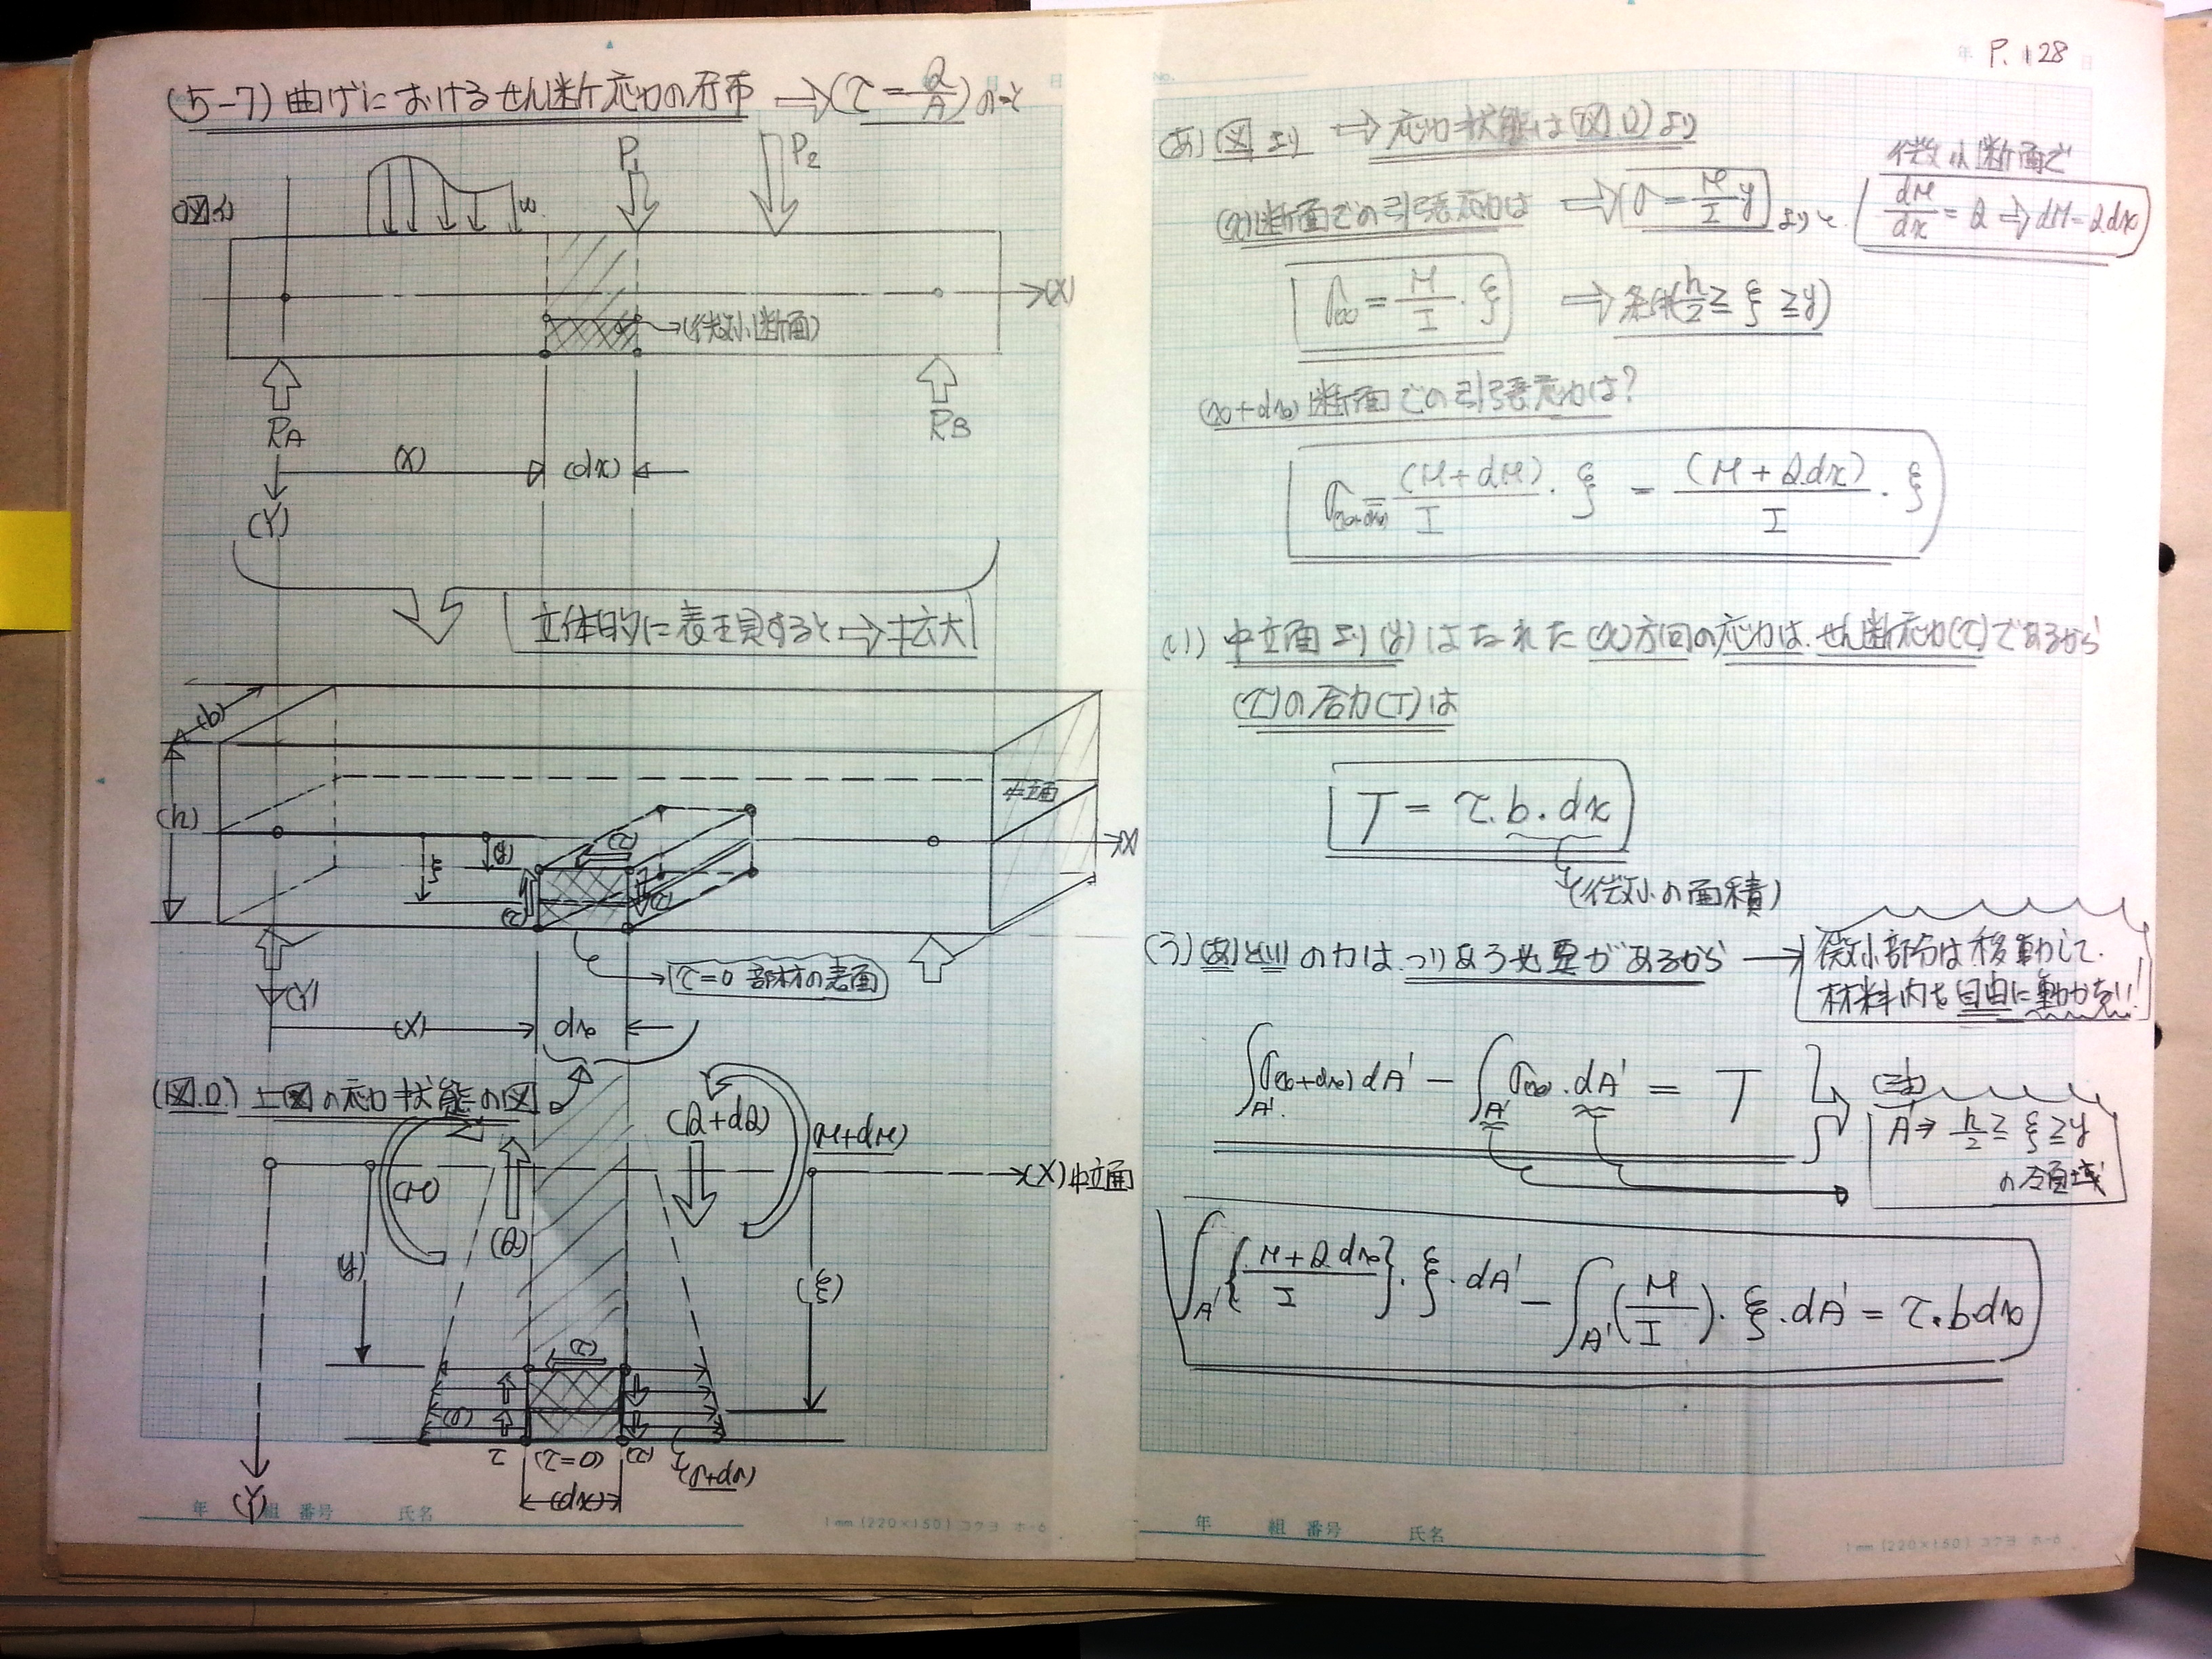 (5-7) 曲げにおけるせん断応力の分布 ⇒ (τ = Q/A) のこと
(図.イ)
ω
P1
P2
(X)
→(微小断面)
RA
RB
(X)
(dx)
(Y)
立体的に表現すると ⇒ 拡大
(b)
(h)
中立面
(X)
(y)
ξ
(τ)
(τ)
(τ)
τ=0 部材の表面
(Y)
(X)
dx
(図.ロ) 上図の応力状態の図
(M)
(Q)
(Q+dQ)
(M+dM)
(X) 中立面
(y)
(ξ)
(τ)
(σ)
τ
(τ=0)
(τ)
(σ+dσ)
(dx)
(Y)
年 組 番号 氏名
1mm (220×150) コクヨ ホ-6
年 P. 128 日
No.
(あ) (図)より ⇒ 応力状態は(図.ロ)より
微小断面で
(x)断面での引張応力は ⇒ (σ = M/I y) より
dM/dx = Q ⇒ dM = Qdx
σ(x) = M/I · ξ ⇒ 条件(h/2 ≧ ξ ≧ y)
(x+dx) 断面での引張応力は?
σ(x+dx) = (M+dM)/I · ξ = (M+Qdx)/I · ξ
(い) 中立面より(y)はなれた(x)方向の応力は、せん断応力(τ)であるから
(τ)の合力(T)は
T = τ. b. dx
(微小の面積)
(う) (あ)と(い)の力は つりあう必要があるから → 微小部分は移動して.
材料内を自由に動かない!
∫A' σ(x+dx) dA' − ∫A' σ(x) · dA' = T
(注)
A' ⇒ h/2 ≧ ξ ≧ y
の領域
∫A' {M+Qdx / I} · ξ · dA' − ∫A' (M/I) · ξ · dA' = τ · bdx
年 組 番号 氏名
1mm (220×150) コクヨ ホ-6